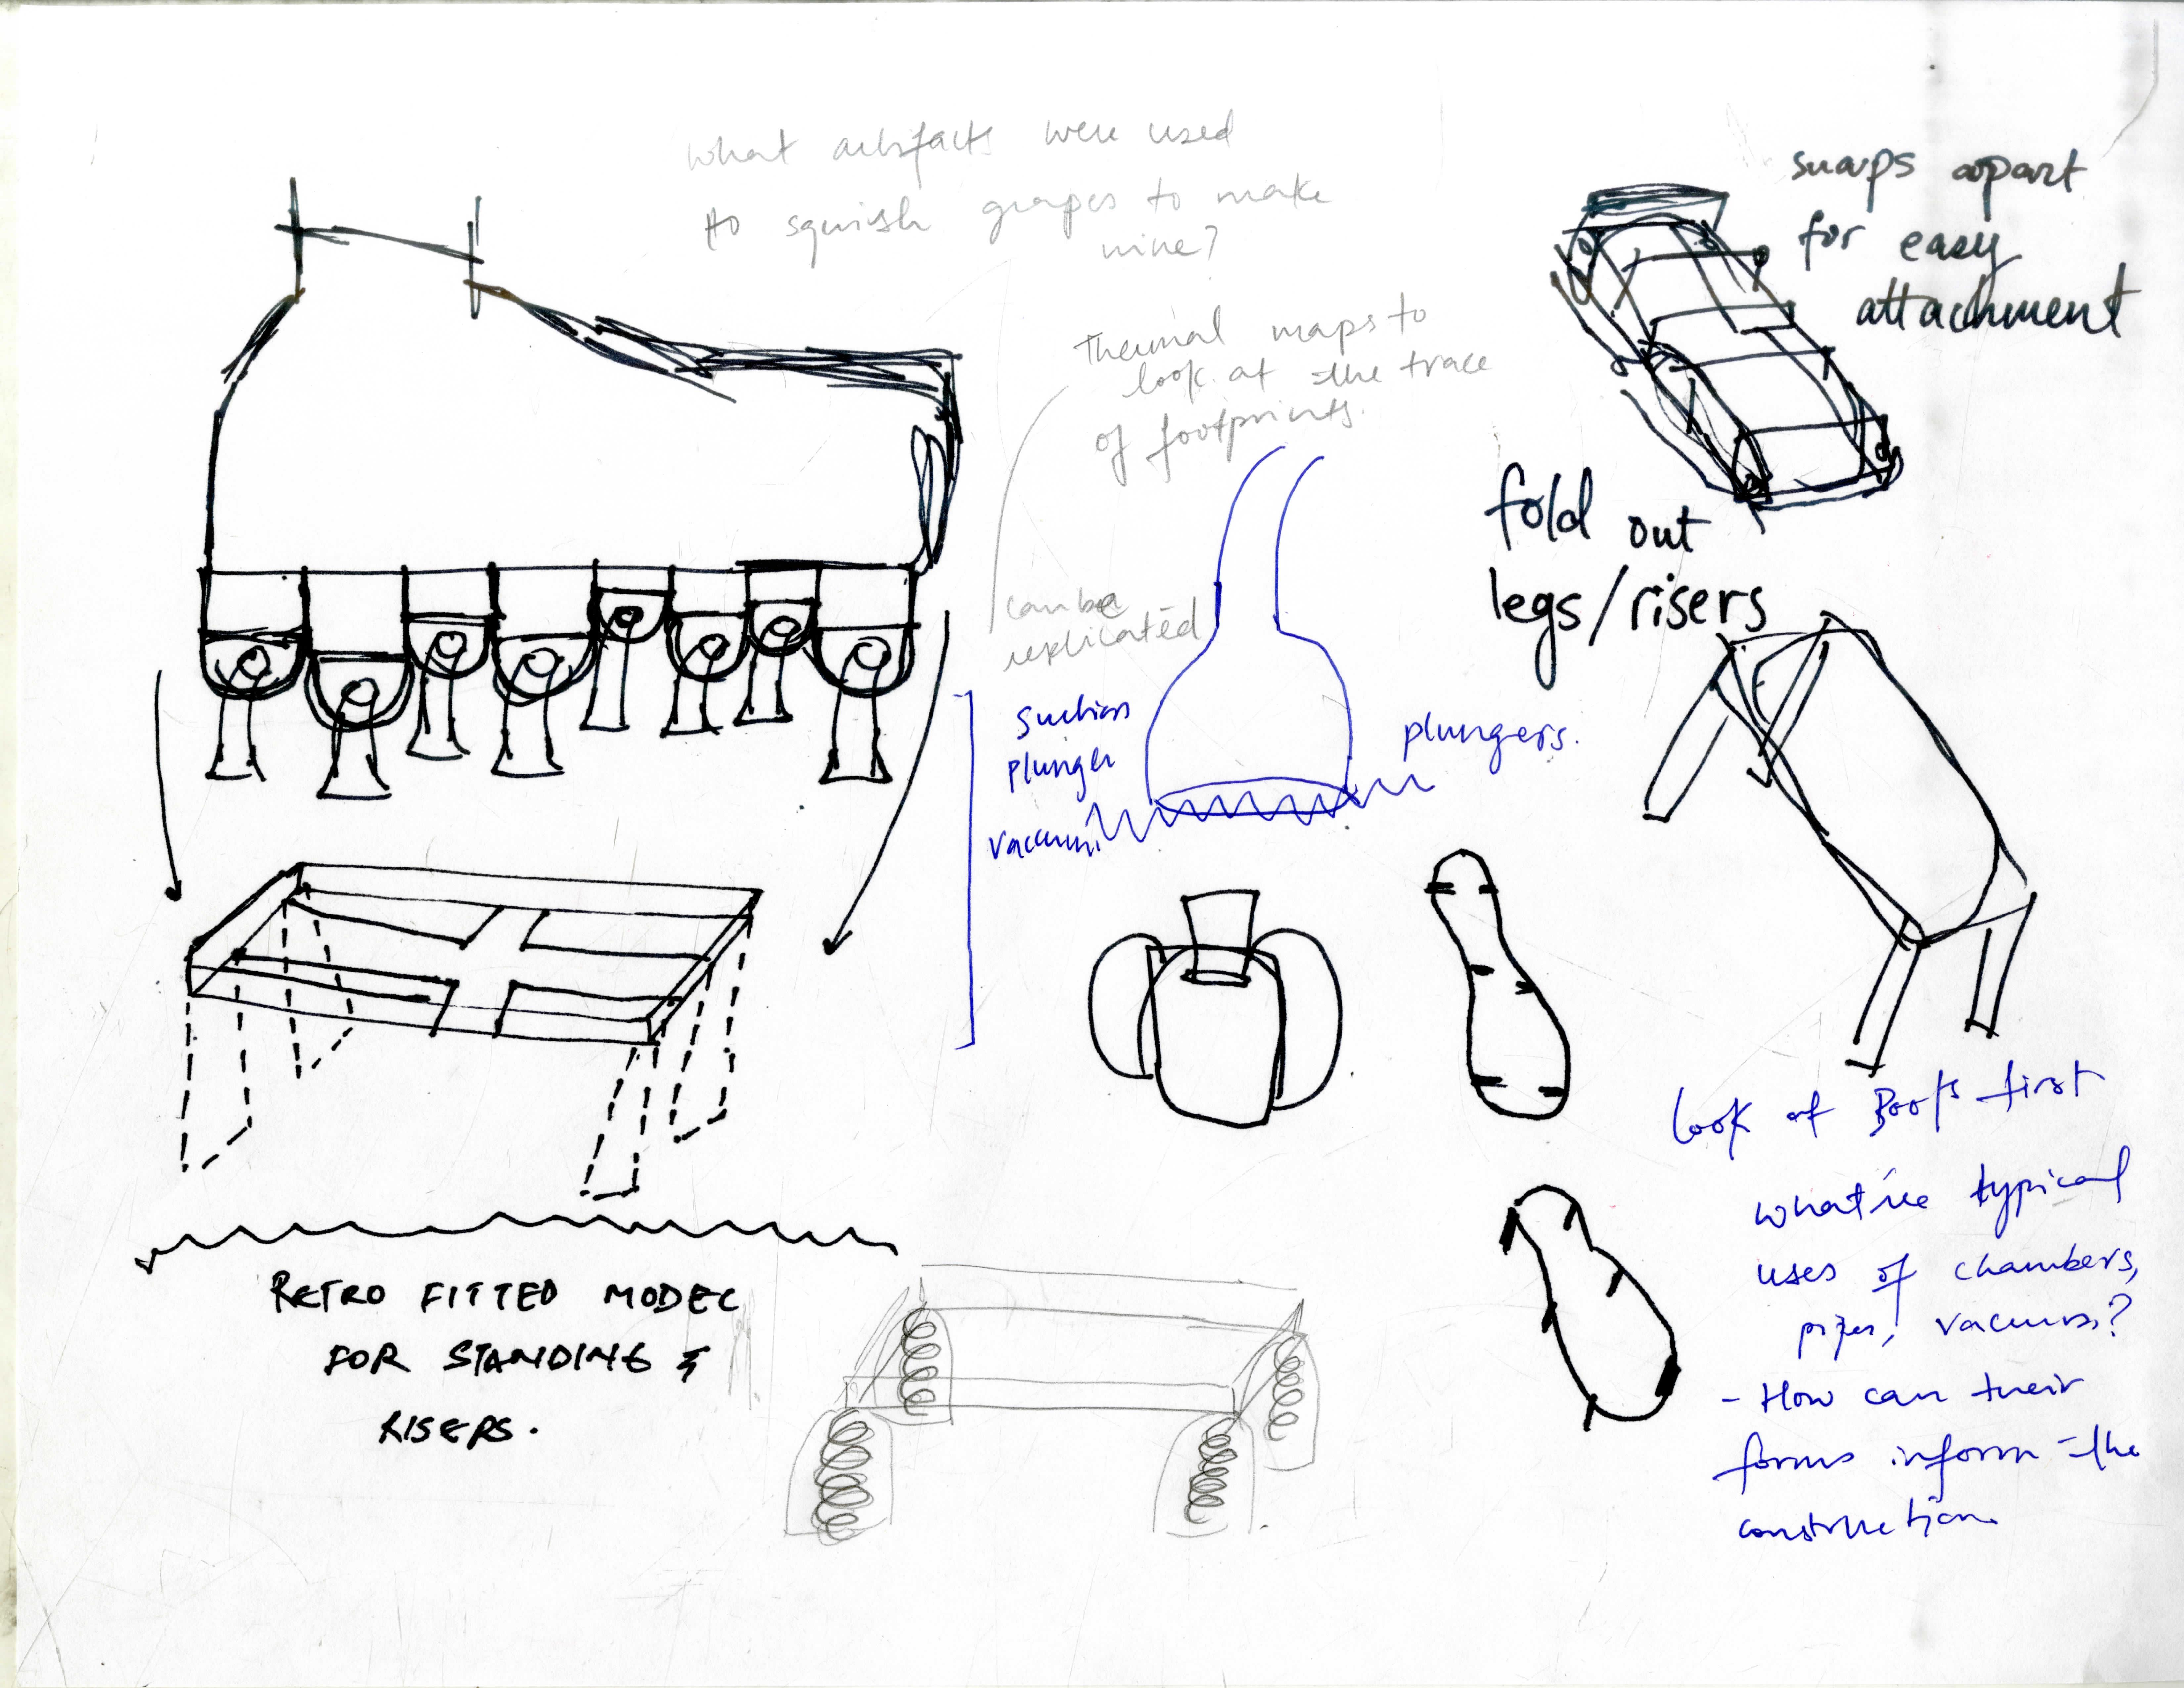 what artifacts were used
to squish grapes to make
wine?
Thermal maps to
look at the trace
of footprints.
can be
replicated
snaps apart
for easy
attachment
fold out
legs/risers
Suction
plunger
vacuum
plungers.
look at Boots first
what're typical
uses of chambers,
pipes, vacuums?
- How can their
forms inform the
construction
RETRO FITTED MODEL
FOR STANDING &
RISERS.